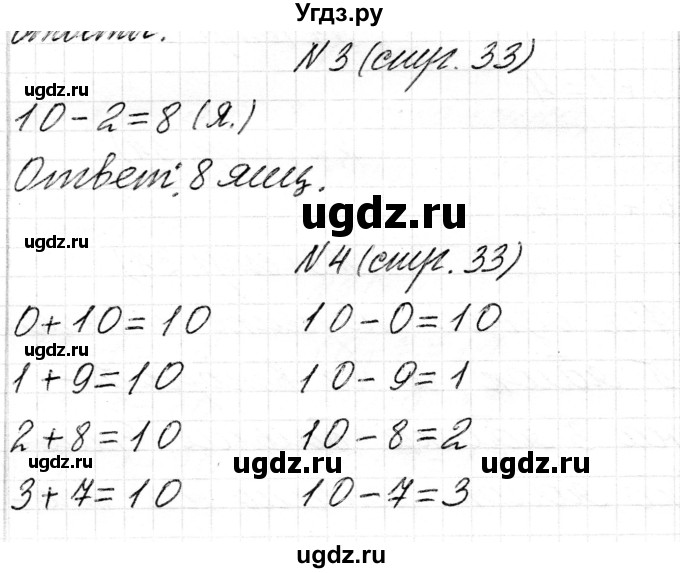 Угдз.ру
ответы.
№3 (стр. 33)
ugdz.ru
10-2=8 (я.)
Ответ: 8 яиц.
ugdz.ru
ugdz.ru
№4 (стр. 33)
0+10=10 10-0=10
ugdz.ru
1+9=10 10-9=1
2+8=10 10-8=2
ugdz.ru ugdz.ru ugdz.ru
3+7=10 10-7=3
ugdz.ru